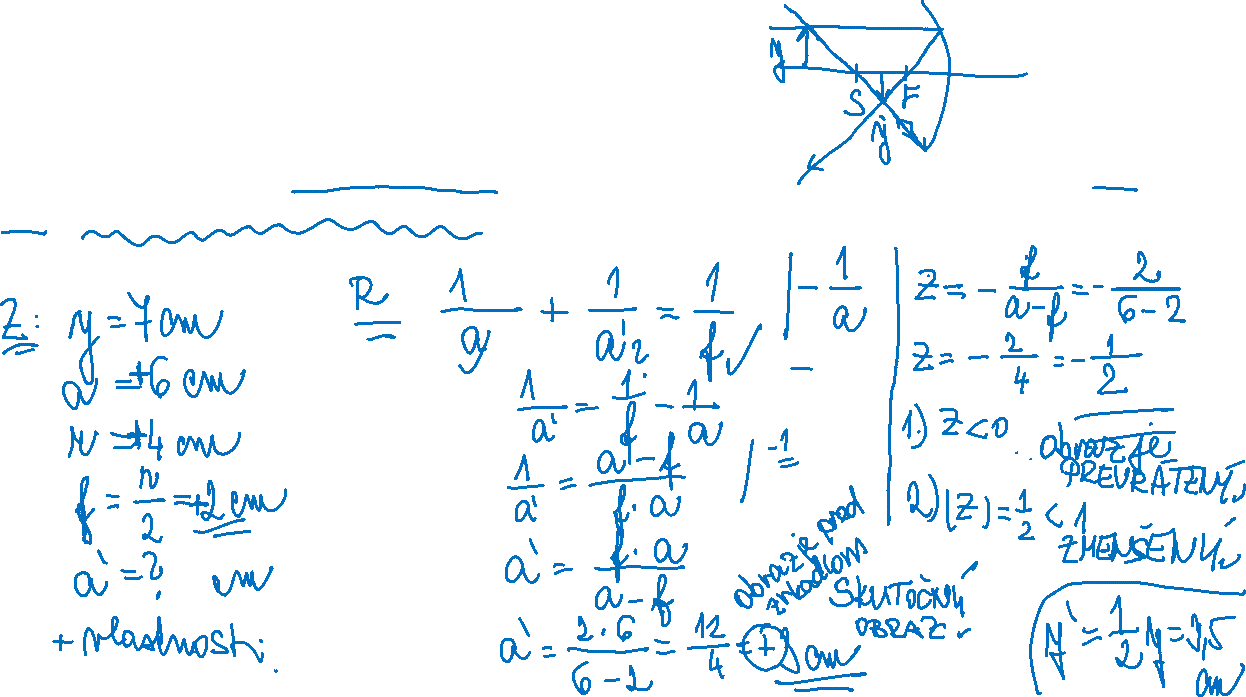 y
S F
y'
Z: y = 7 cm
a = +6 cm
r = +4 cm
f = r/2 = +2 cm
a' = ? cm
+ vlastnosti
R 1/a + 1/a' = 1/f | - 1/a
1/a' = 1/f - 1/a
1/a' = (a - f)/(f · a) /⁻¹
a' = (f · a)/(a - f)
a' = (2 · 6)/(6 - 2) = 12/4 = +3 cm
obraz je pred
zrkadlom
SKUTOČNÝ
OBRAZ
Z = - f/(a - f) = - 2/(6 - 2)
Z = - 2/4 = - 1/2
1.) Z < 0 .. obraz je
PREVRÁTENÝ
2.) |Z| = 1/2 < 1
ZMENŠENÝ
y' = 1/2 y = 3,5
cm